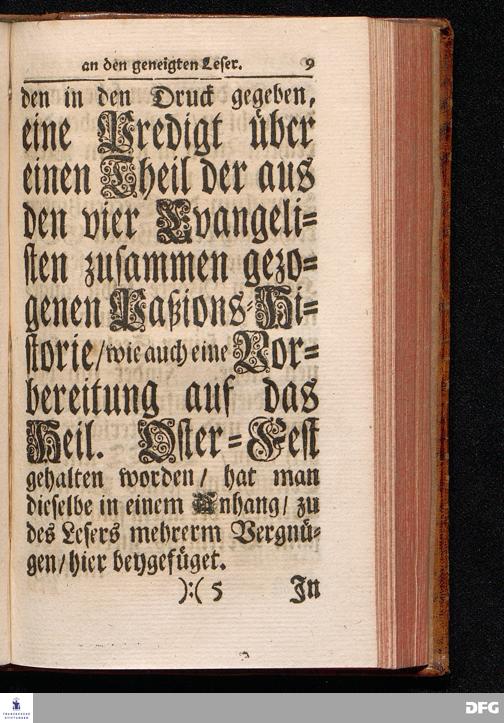 an den geneigten Leser. 9
den in den Druck gegeben,
eine Predigt über
einen Theil der aus
den vier Evangeli=
sten zusammen gezo=
genen Paßions-Hi=
storie/wie auch eine Vor=
bereitung auf das
Heil. Oster=Fest
gehalten worden/ hat man
dieselbe in einem Anhang/ zu
des Lesers mehrerm Vergnü=
gen/hier beygefüget.
):( 5 In
FRANCKESCHE STIFTUNGEN
DFG